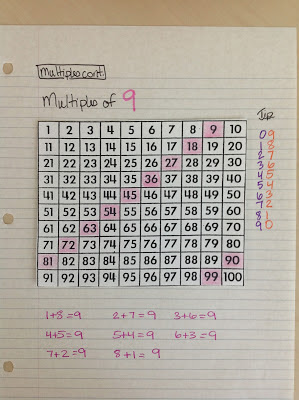 Multiples cont
Multiples of 9
Tip
1 2 3 4 5 6 7 8 9 10
11 12 13 14 15 16 17 18 19 20
21 22 23 24 25 26 27 28 29 30
31 32 33 34 35 36 37 38 39 40
41 42 43 44 45 46 47 48 49 50
51 52 53 54 55 56 57 58 59 60
61 62 63 64 65 66 67 68 69 70
71 72 73 74 75 76 77 78 79 80
81 82 83 84 85 86 87 88 89 90
91 92 93 94 95 96 97 98 99 100
09
18
27
36
45
54
63
72
81
90
1+8=9 2+7=9 3+6=9
4+5=9 5+4=9 6+3=9
7+2=9 8+1=9